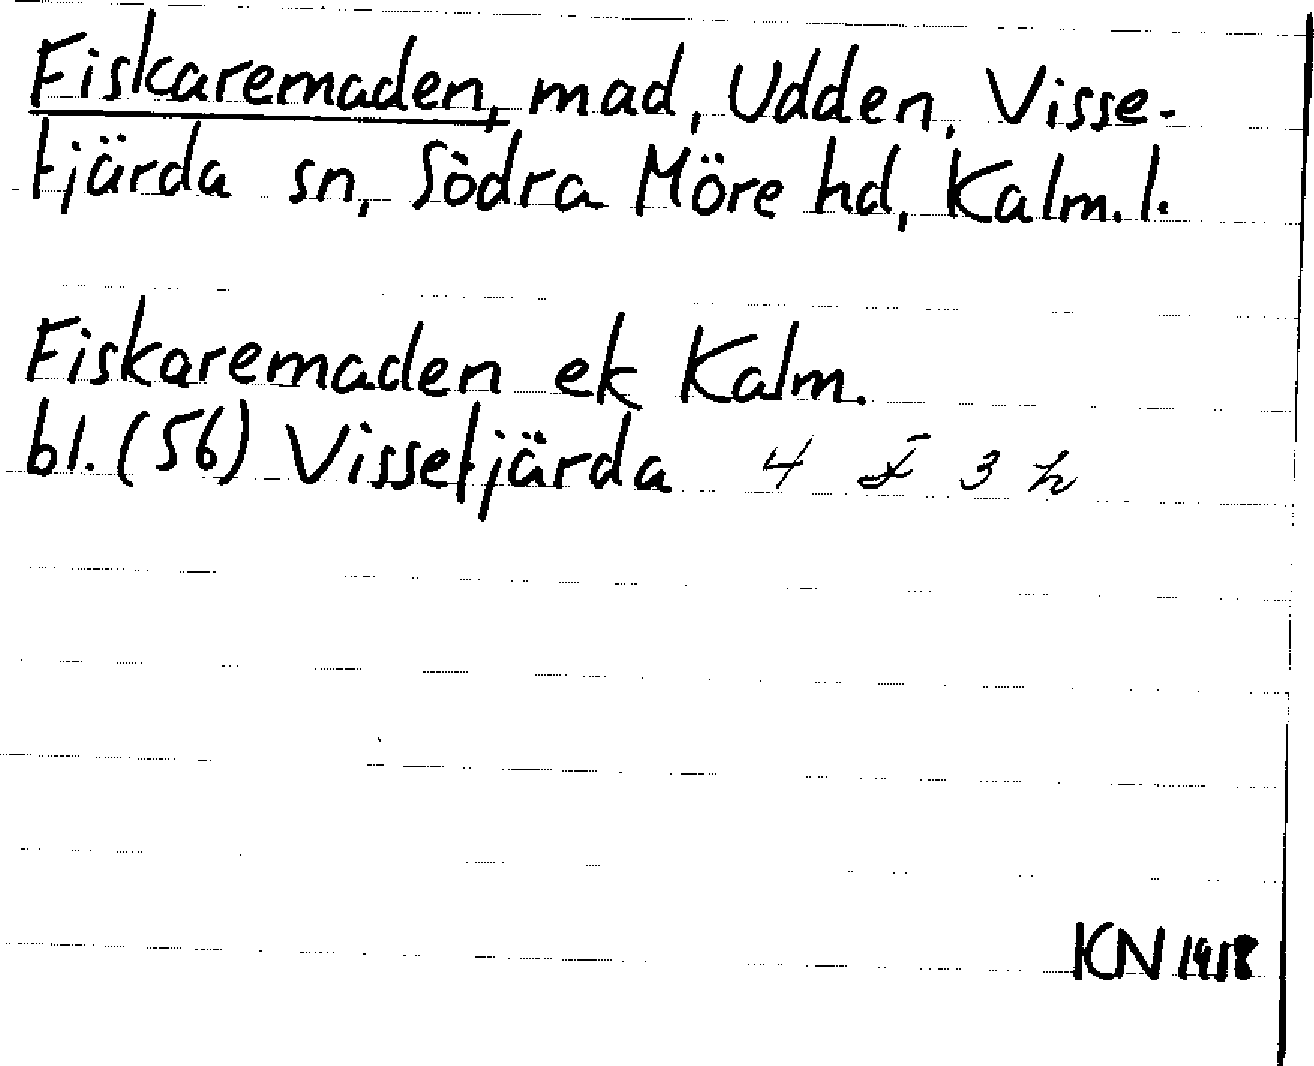 Fiskaremaden, mad, Udden, Visse-
fjärda sn, Södra Möre hd, Kalm. l.
Fiskaremaden ek Kalm.
bl. (56) Vissefjärda 4 F 3 h
KN 1958